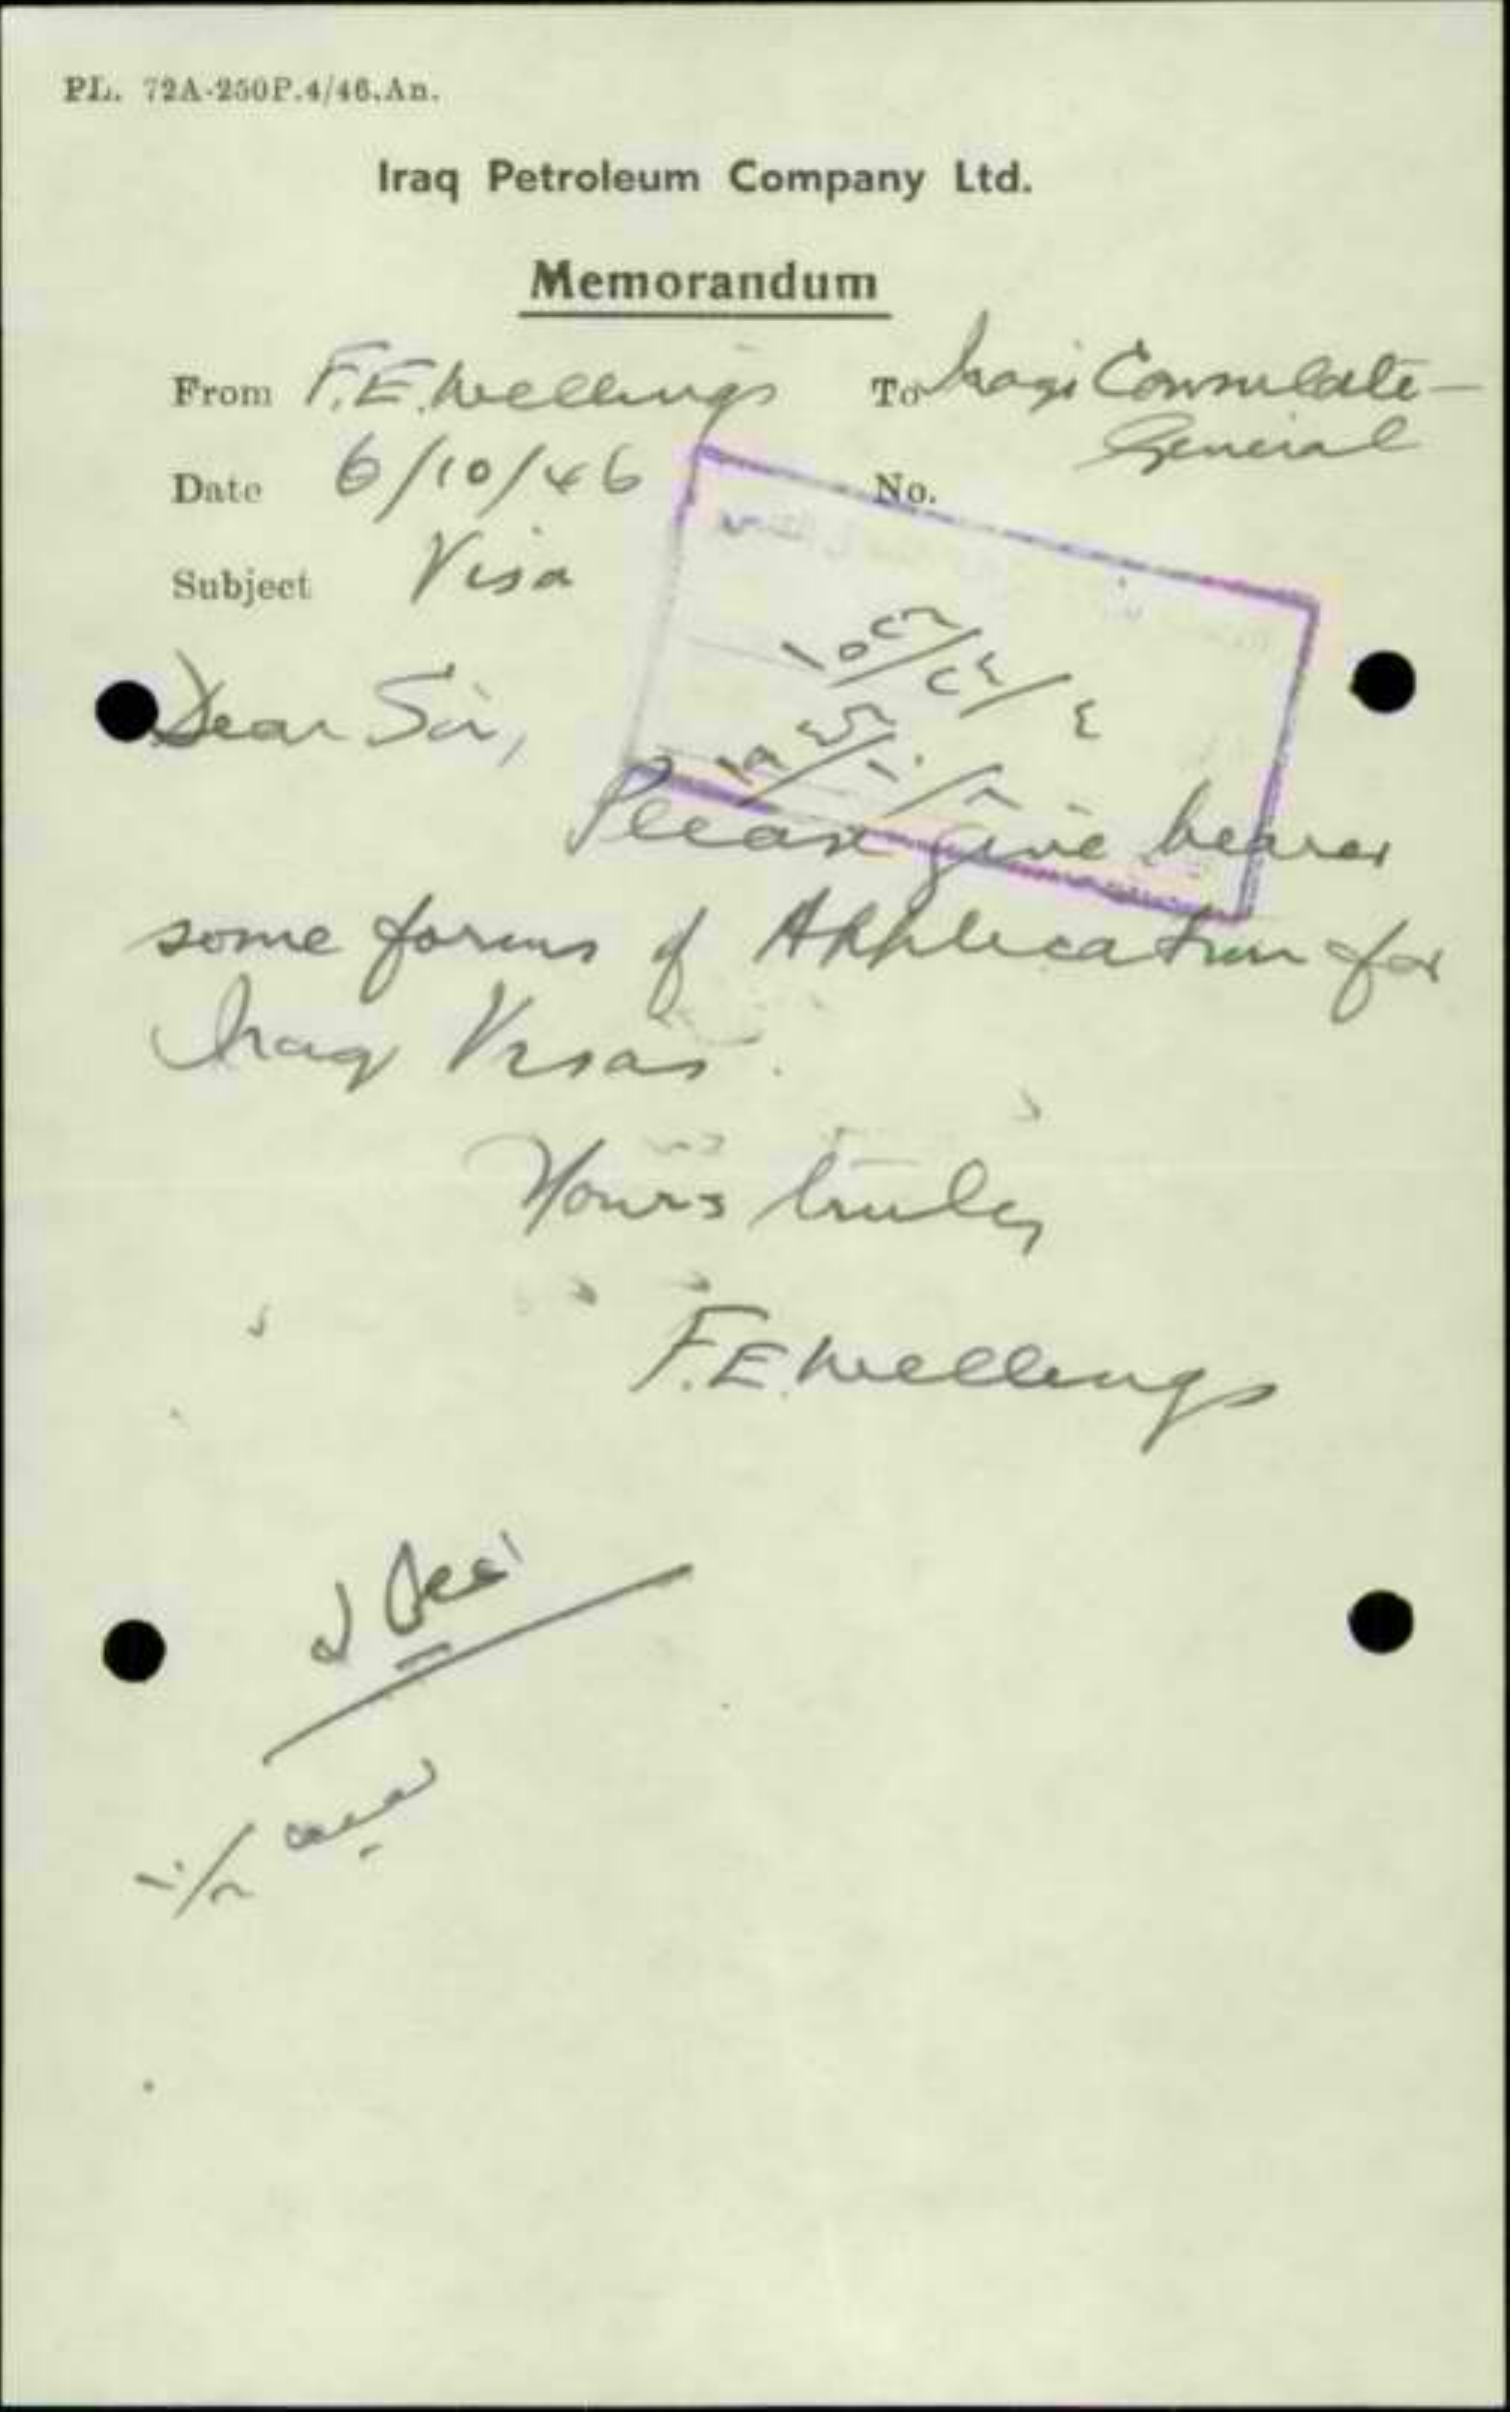 PL. 72A-250P.4/46.An.
Iraq Petroleum Company Ltd.
Memorandum
From F.E. Wellings To Iraqi Consulate-
General
Date 6/10/46 No.
Subject Visa
Dear Sir,
Please give bearer
some forms of Application for
Iraq Visas.
Yours truly
F.E. Wellings